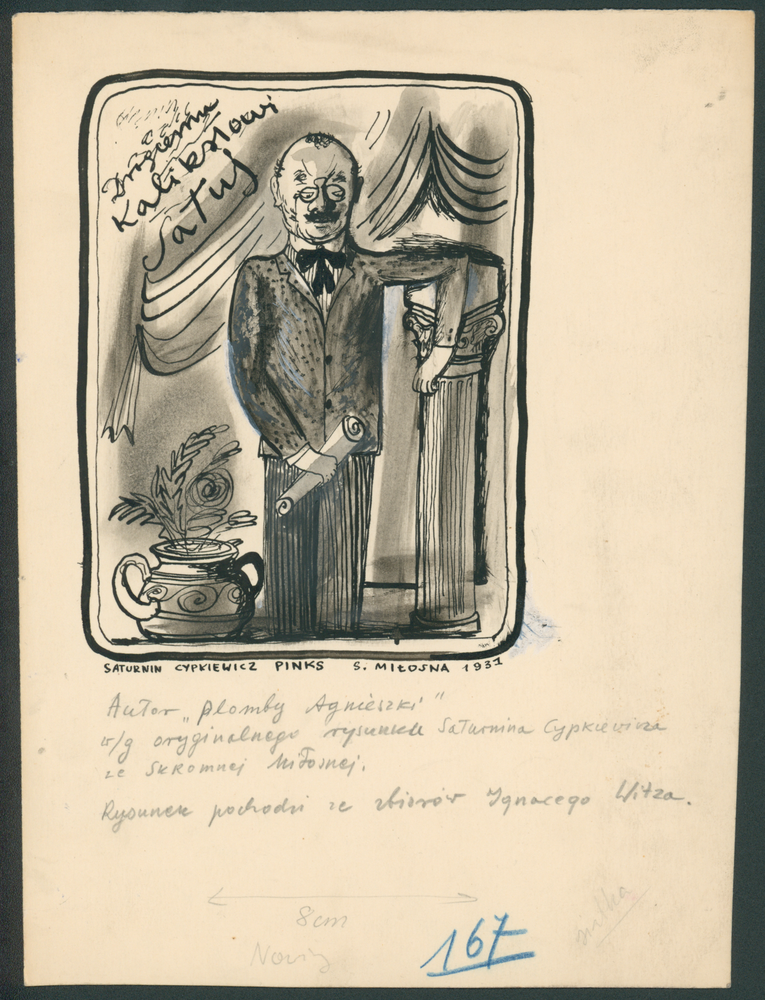 Drogiemu
Kalikstowi
Satuś
SATURNIN CYPKIEWICZ PINKS S. MIŁOSNA 1931
Autor „Plomby Agnieszki”
w/g oryginalnego rysunku Saturnina Cypkiewicza
ze Skromnej Miłosnej.
Rysunek pochodzi ze zbiorów Ignacego Witza.
8cm
167